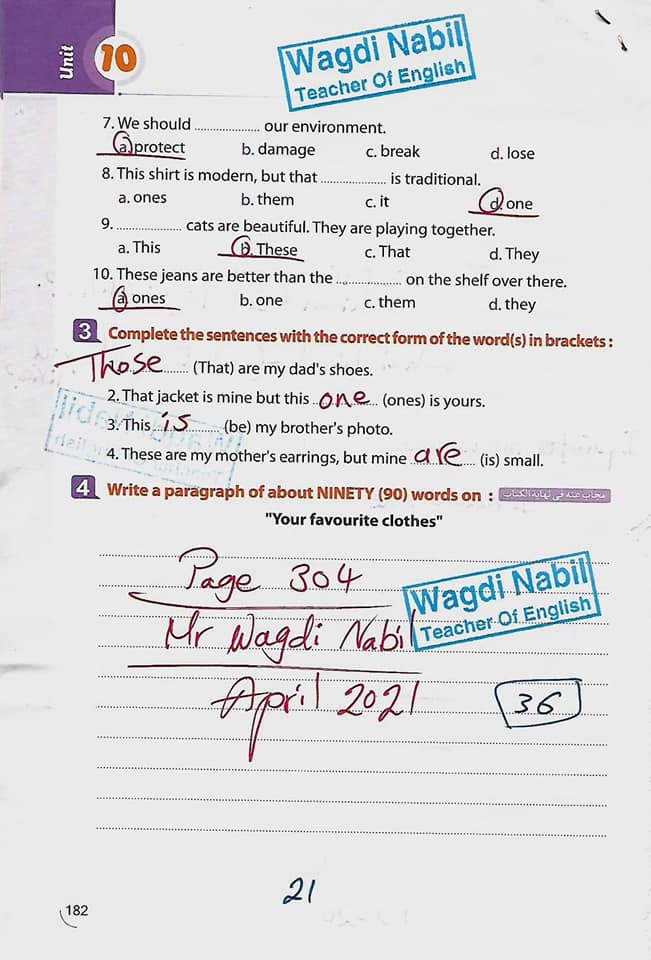 Unit 10
Wagdi Nabil
Teacher Of English
7. We should .................... our environment.
a. protect b. damage c. break d. lose
8. This shirt is modern, but that .................... is traditional.
a. ones b. them c. it d. one
9. .................... cats are beautiful. They are playing together.
a. This b. These c. That d. They
10. These jeans are better than the .................... on the shelf over there.
a. ones b. one c. them d. they
3 Complete the sentences with the correct form of the word(s) in brackets :
Those ........ (That) are my dad's shoes.
2. That jacket is mine but this ..one... (ones) is yours.
3. This ...is........ (be) my brother's photo.
4. These are my mother's earrings, but mine ..are.... (is) small.
4 Write a paragraph of about NINETY (90) words on : مجاب عنه فى نهاية الكتاب
"Your favourite clothes"
Page 304
Wagdi Nabil
Teacher Of English
Mr Wagdi Nabil
April 2021
36
21
182